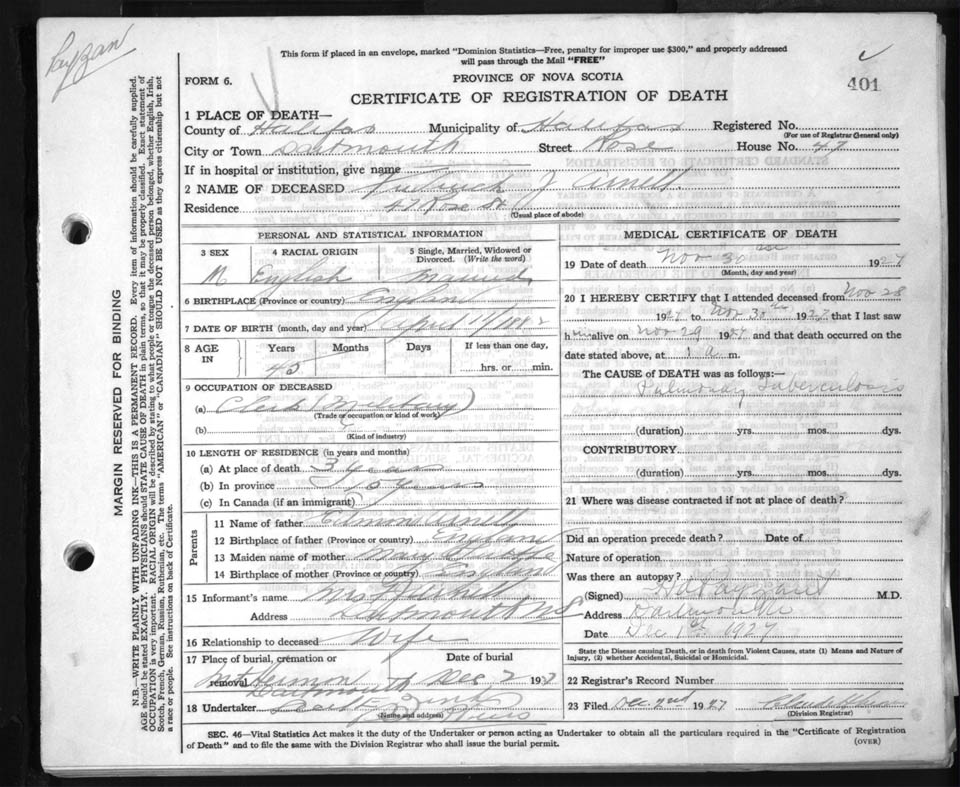 This form if placed in an envelope, marked "Dominion Statistics—Free, penalty for improper use $300," and properly addressed
will pass through the Mail "FREE"
FORM 6.
PROVINCE OF NOVA SCOTIA
401
CERTIFICATE OF REGISTRATION OF DEATH
1 PLACE OF DEATH—
County of Halifax Municipality of Halifax Registered No.
(For use of Registrar General only)
City or Town Dartmouth Street Rose House No. 47
If in hospital or institution, give name
2 NAME OF DECEASED J
Residence 47 Rose St
(Usual place of abode)
PERSONAL AND STATISTICAL INFORMATION
3 SEX 4 RACIAL ORIGIN 5 Single, Married, Widowed or Divorced. (Write the word)
M English Married
6 BIRTHPLACE (Province or country) England
7 DATE OF BIRTH (month, day and year) April 11/1882
8 AGE IN Years Months Days If less than one day,
45 hrs. or min.
9 OCCUPATION OF DECEASED
(a) Clerk (Military)
(Trade or occupation or kind of work)
(b)
(Kind of industry)
10 LENGTH OF RESIDENCE (in years and months)
(a) At place of death 3 years
(b) In province years
(c) In Canada (if an immigrant)
Parents
11 Name of father
12 Birthplace of father (Province or country) England
13 Maiden name of mother Mary
14 Birthplace of mother (Province or country) England
15 Informant's name Mrs
Address Dartmouth NS
16 Relationship to deceased Wife
17 Place of burial, cremation or removal Date of burial
Mt Hermon Dec 2 1937
Dartmouth
18 Undertaker
(Name and address)
MEDICAL CERTIFICATE OF DEATH
19 Date of death Nov 30 1927
(Month, day and year)
20 I HEREBY CERTIFY that I attended deceased from Nov 28
1927 to Nov 30th 1927 that I last saw
him alive on Nov 29 1927 and that death occurred on the
date stated above, at 1 a m.
The CAUSE of DEATH was as follows:—
Pulmonary Tuberculosis
(duration) yrs. mos. dys.
CONTRIBUTORY
(duration) yrs. mos. dys.
21 Where was disease contracted if not at place of death?
Did an operation precede death? Date of
Nature of operation
Was there an autopsy?
(Signed) M.D.
Address Dartmouth
Date Dec 1st 1927
State the Disease causing Death, or in death from Violent Causes, state (1) Means and Nature of
Injury, (2) whether Accidental, Suicidal or Homicidal.
22 Registrar's Record Number
23 Filed Dec. 2nd 1927
(Division Registrar)
SEC. 46—Vital Statistics Act makes it the duty of the Undertaker or person acting as Undertaker to obtain all the particulars required in the "Certificate of Registration
of Death" and to file the same with the Division Registrar who shall issue the burial permit.
(OVER)
MARGIN RESERVED FOR BINDING
N.B.—WRITE PLAINLY WITH UNFADING INK—THIS IS A PERMANENT RECORD. Every item of information should be carefully supplied.
AGE should be stated EXACTLY. PHYSICIANS should STATE CAUSE OF DEATH in plain terms, so that it may be properly classified. Exact statement of
OCCUPATION is very important. RACIAL ORIGIN will be described by stating to what people or tongue the deceased person belonged, whether English, Irish,
Scotch, French, German, Russian, Ruthenian, etc. The terms "AMERICAN" or "CANADIAN" SHOULD NOT BE USED as they express citizenship but not
a race or people. See instructions on back of Certificate.